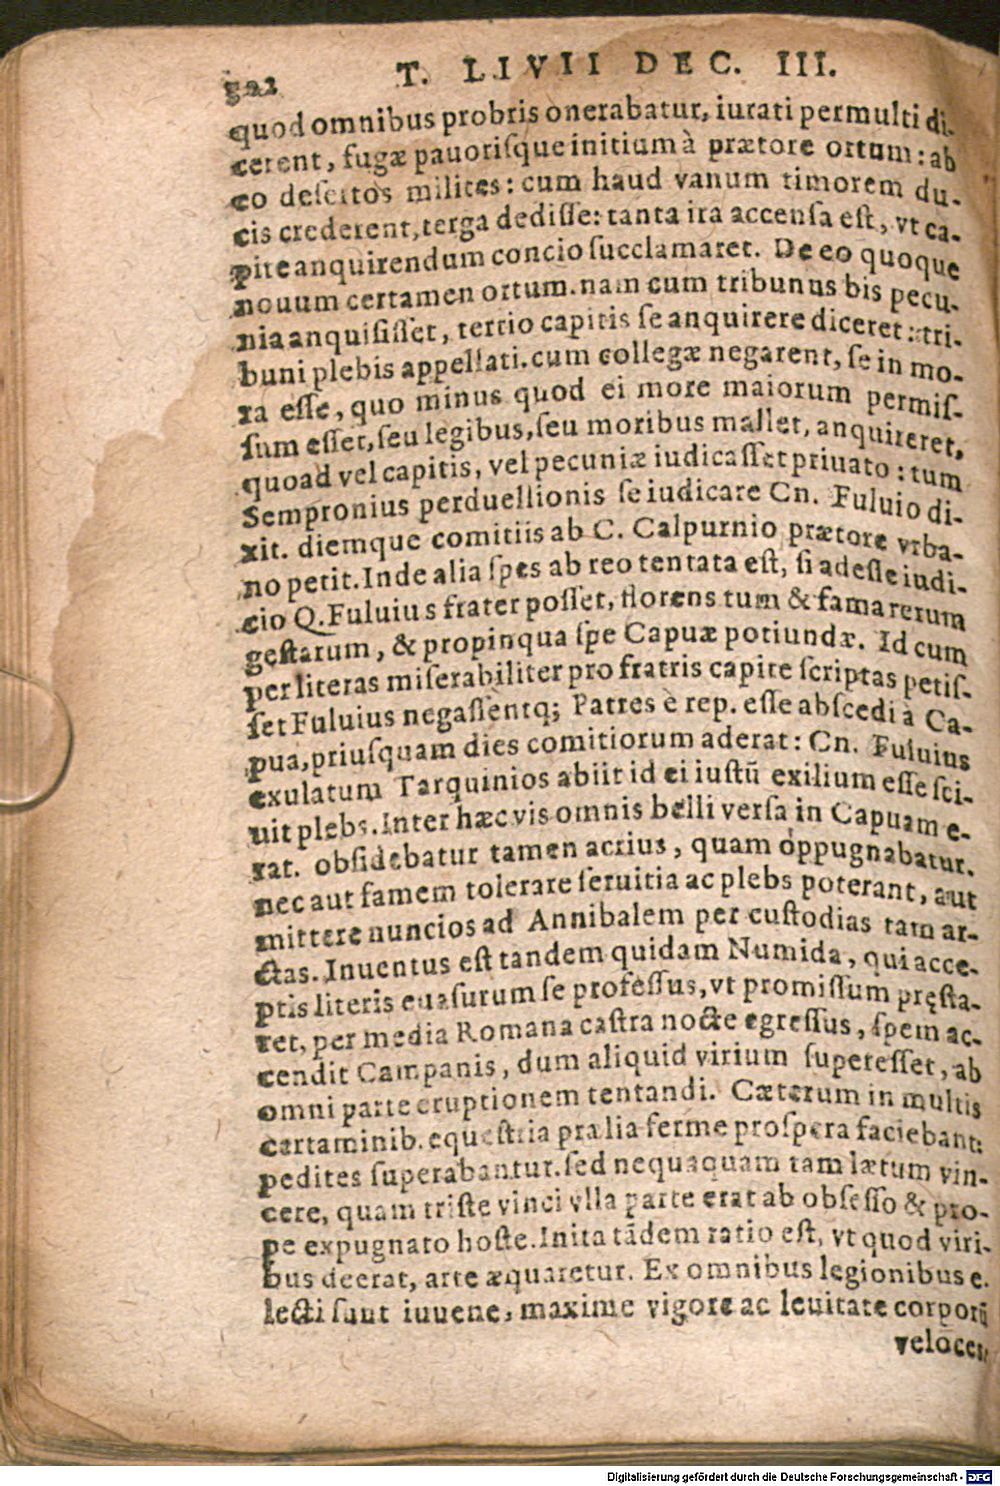 T. LIVII DEC. III.
quod omnibus probris onerabatur, iurati permulti di-
cerent, fugæ pauorisque initium à prætore ortum: ab
eo desertos milites: cum haud vanum timorem du-
cis crederent, terga dedisse: tanta ira accensa est, vt ca-
pite anquirendum concio succlamaret. De eo quoque
nouum certamen ortum. nam cum tribunus bis pecu-
nia anquisisset, tertio capitis se anquirere diceret: tri-
buni plebis appellati. cum collegæ negarent, se in mo-
ra esse, quo minus quod ei more maiorum permis-
sum esset, seu legibus, seu moribus mallet, anquireret,
quoad vel capitis, vel pecuniæ iudicasset priuato: tum
Sempronius perduellionis se iudicare Cn. Fuluio di-
xit. diemque comitiis ab C. Calpurnio prætore vrba-
no petit. Inde alia spes ab reo tentata est, si adesse iudi-
cio Q. Fuluius frater posset, florens tum & fama rerum
gęstarum, & propinqua spe Capuæ potiundæ. Id cum
per literas miserabiliter pro fratris capite scriptas petis-
set Fuluius negassentq; Patres è rep. esse abscedi à Ca-
pua, priusquam dies comitiorum aderat: Cn. Fuluius
exulatum Tarquinios abiit id ei iustū exilium esse sci-
uit plebs. Inter hæc vis omnis belli versa in Capuam e-
rat. obsidebatur tamen acrius, quam oppugnabatur.
nec aut famem tolerare seruitia ac plebs poterant, aut
mittere nuncios ad Annibalem per custodias tam ar-
ctas. Inuentus est tandem quidam Numida, qui acce-
ptis literis euasurum se professus, vt promissum pręsta-
ret, per media Romana castra nocte egressus, spem ac-
cendit Campanis, dum aliquid virium superesset, ab
omni parte eruptionem tentandi. Cæterum in multis
certaminib. equestria prælia ferme prospera faciebant:
pedites superabantur. sed nequaquam tam lætum vin-
cere, quam triste vinci vlla parte erat ab obsesso & pro-
pe expugnato hoste. Inita tādem ratio est, vt quod viri-
bus deerat, arte æquaretur. Ex omnibus legionibus e-
lecti sunt iuuene, maxime vigore ac leuitate corporū
veloces,
Digitalisierung gefördert durch die Deutsche Forschungsgemeinschaft - DFG